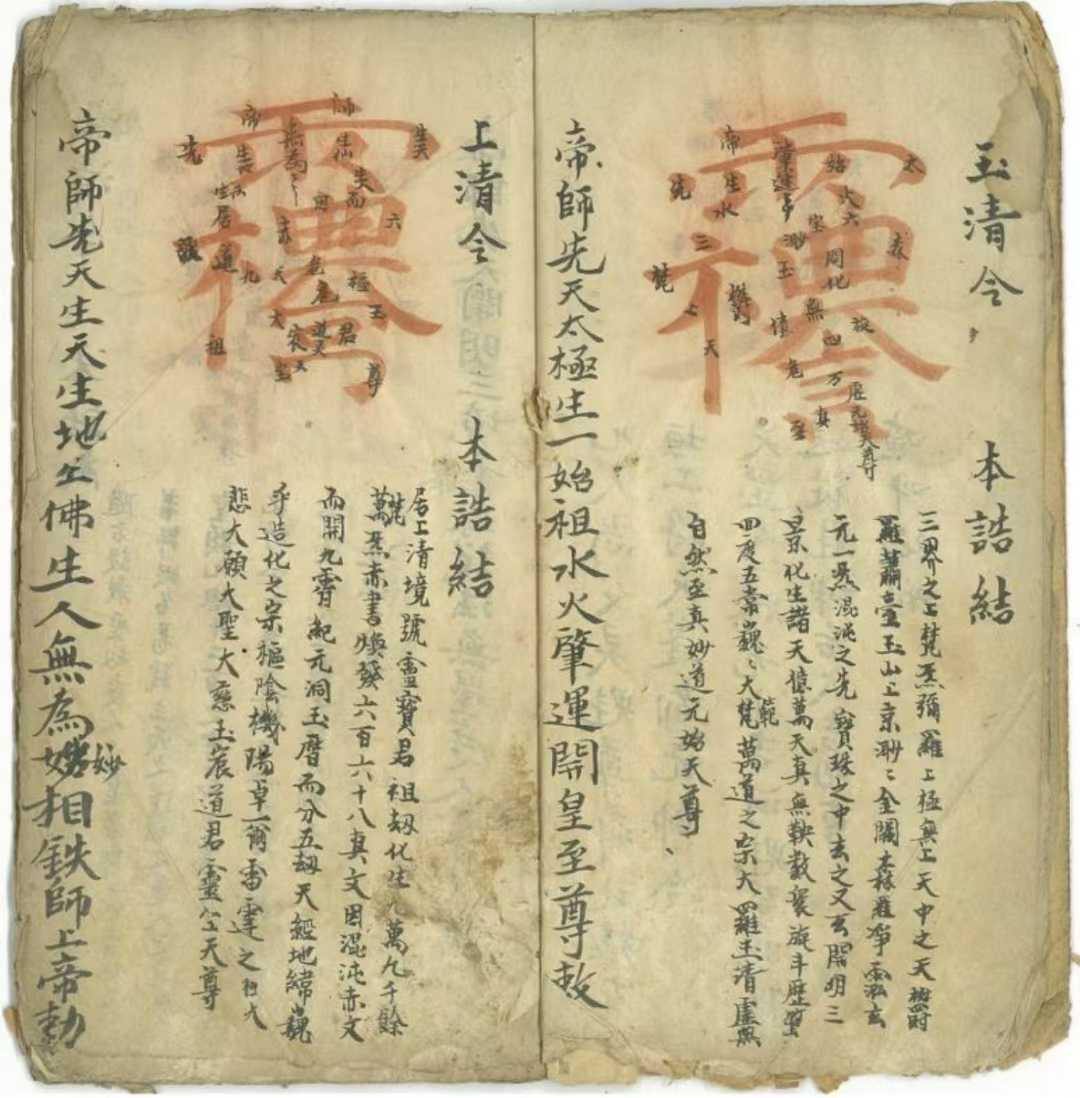 玉清令 本誥結
太
森
始
大
六
宝
同化
無
四
万
真
旋
歷
天尊
渺
玉
鬱
危
至
帝
生
水
三
先
梵
天
三界之上梵炁彌羅上極無上天中之天鬱
羅蕭臺玉山上京渺〻金闕森羅淨泓玄
元一炁混沌之先寶珠之中玄之又玄開明三
景化生諸天億萬天真無鞅數衆旋斗歷箕
四度五常巍〻大梵範萬道之宗大羅玉清虛無
自然至真妙道元始天尊
帝師先天太極生一始祖水火肇運開皇至尊敕
上清令 本誥結
師
生
而
六
福
玉
君
尊
無為
帝
生
九
道
大
先
祖
居上清境號靈寶君祖劫化生九萬九千餘
梵萬炁赤書煥發六百六十八真文因混沌赤文
而開九霄紀元洞玉曆而分五劫天經地緯巍
乎造化之宗樞陰機陽卓爾雷霆之祖大
悲大願大聖大慈玉宸道君靈宝天尊
帝師先天生天生地生佛生人無為妙相鉄師上帝勅